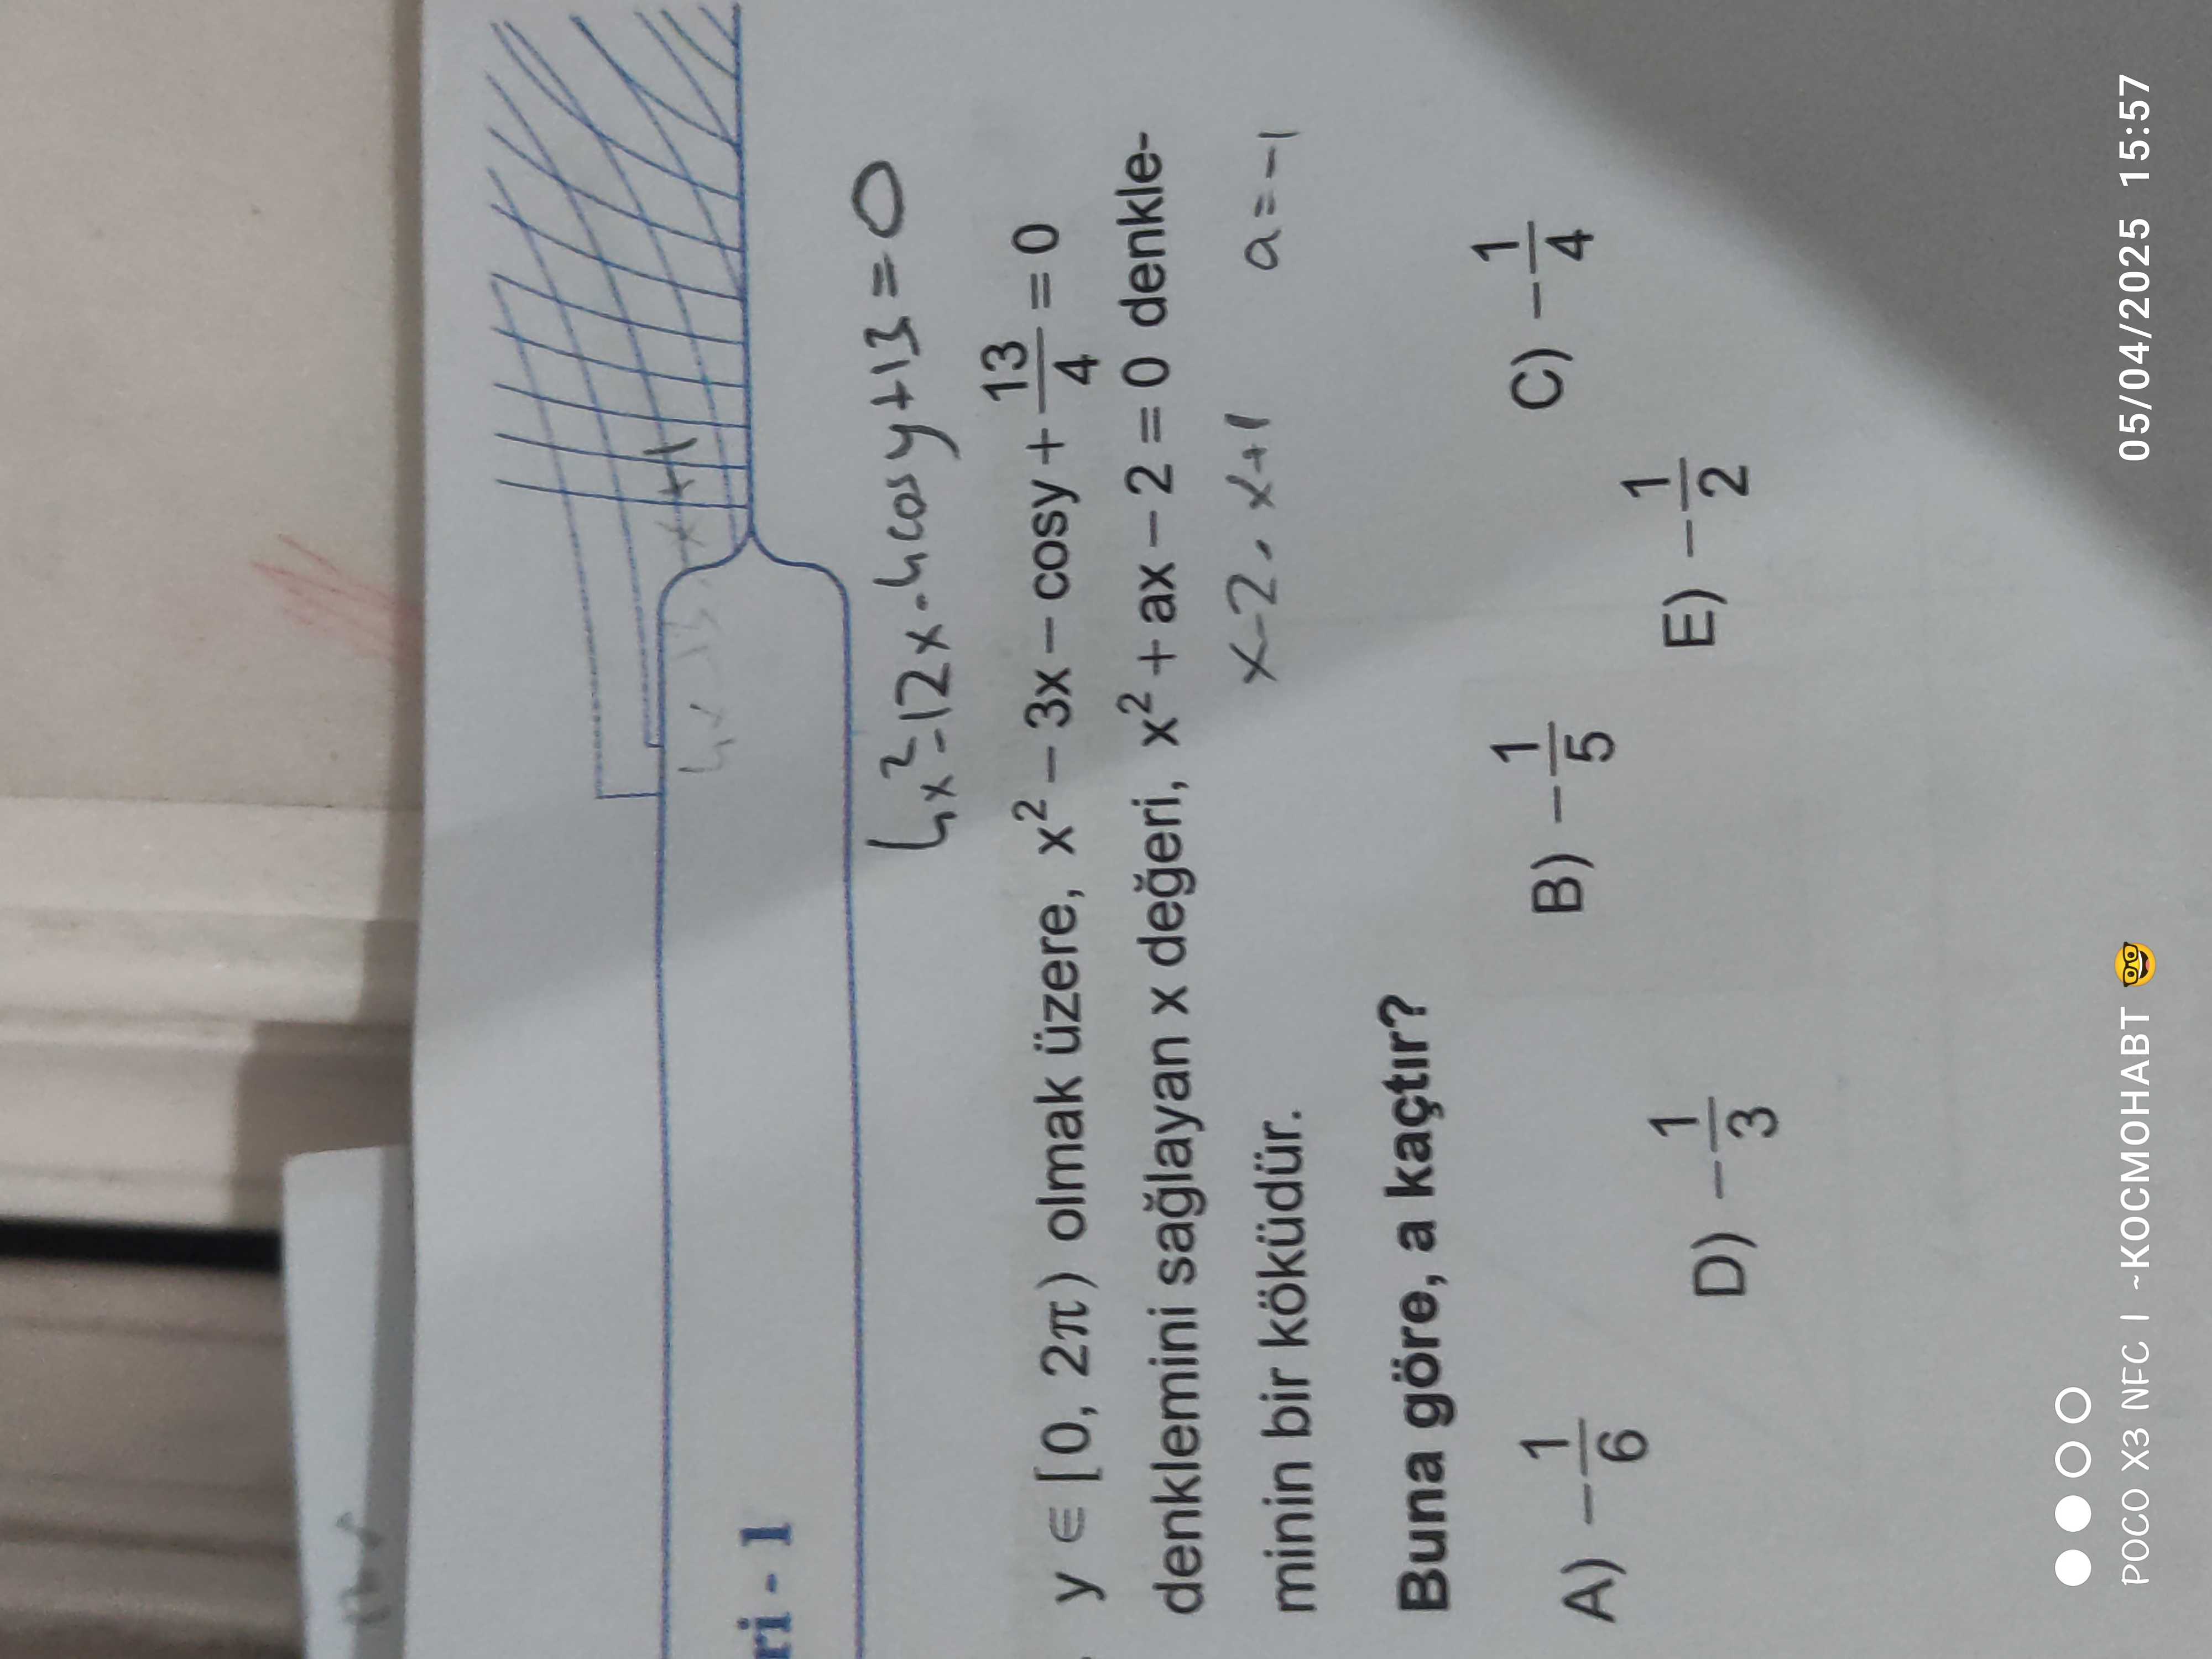 ri - 1
4x²-12x-4cosy+13=0
y ∈ [0, 2π) olmak üzere, x² – 3x – cosy + 13/4 = 0
denklemini sağlayan x değeri, x² + ax – 2 = 0 denkle-
minin bir köküdür.
x-2, x+1 a=-1
Buna göre, a kaçtır?
A) –1/6 B) –1/5 C) –1/4
D) –1/3 E) –1/2
POCO X3 NFC | ~КОСМОНАВТ 🤓 05/04/2025 15:57